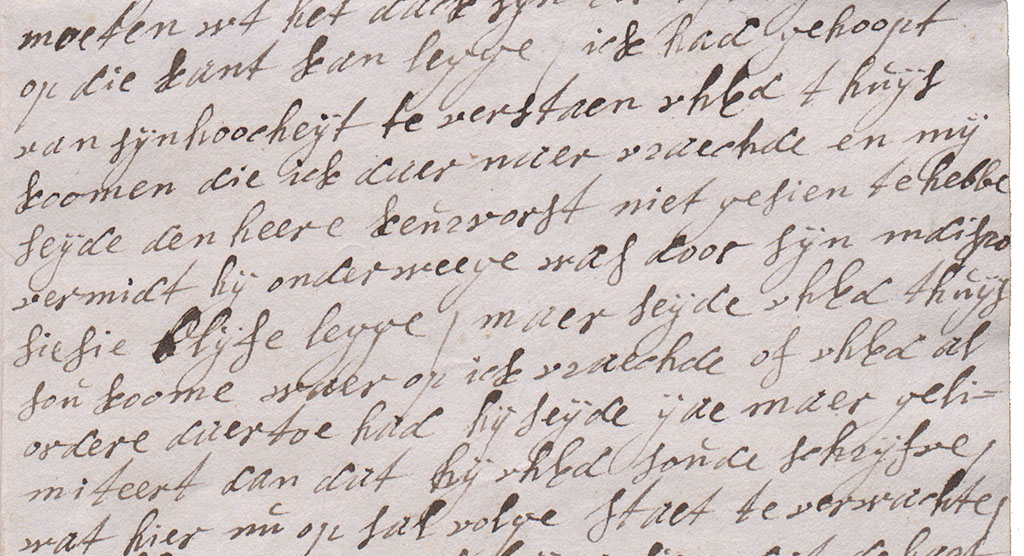 moeten wt het dack sÿn
op die kant kan legge / ick had gehoopt
van sÿn hoocheÿt te verstaen vhEd t huÿs
koomen die ick daer naer vraechde en mÿ
seÿde den heere keurvorst niet gesien te hebbe
vermidt hÿ onderweege was door sÿn indispo
sisie blÿfe legge / maer seÿde vhEd thuÿs
soú koome waer op ick vraechde of vhEd al
ordere daertoe had hÿ seÿde ÿae maer geli=
miteert dan dat hÿ vhEd soúde schrÿfve /
wat hier nú op sal volge staet te verwachte /